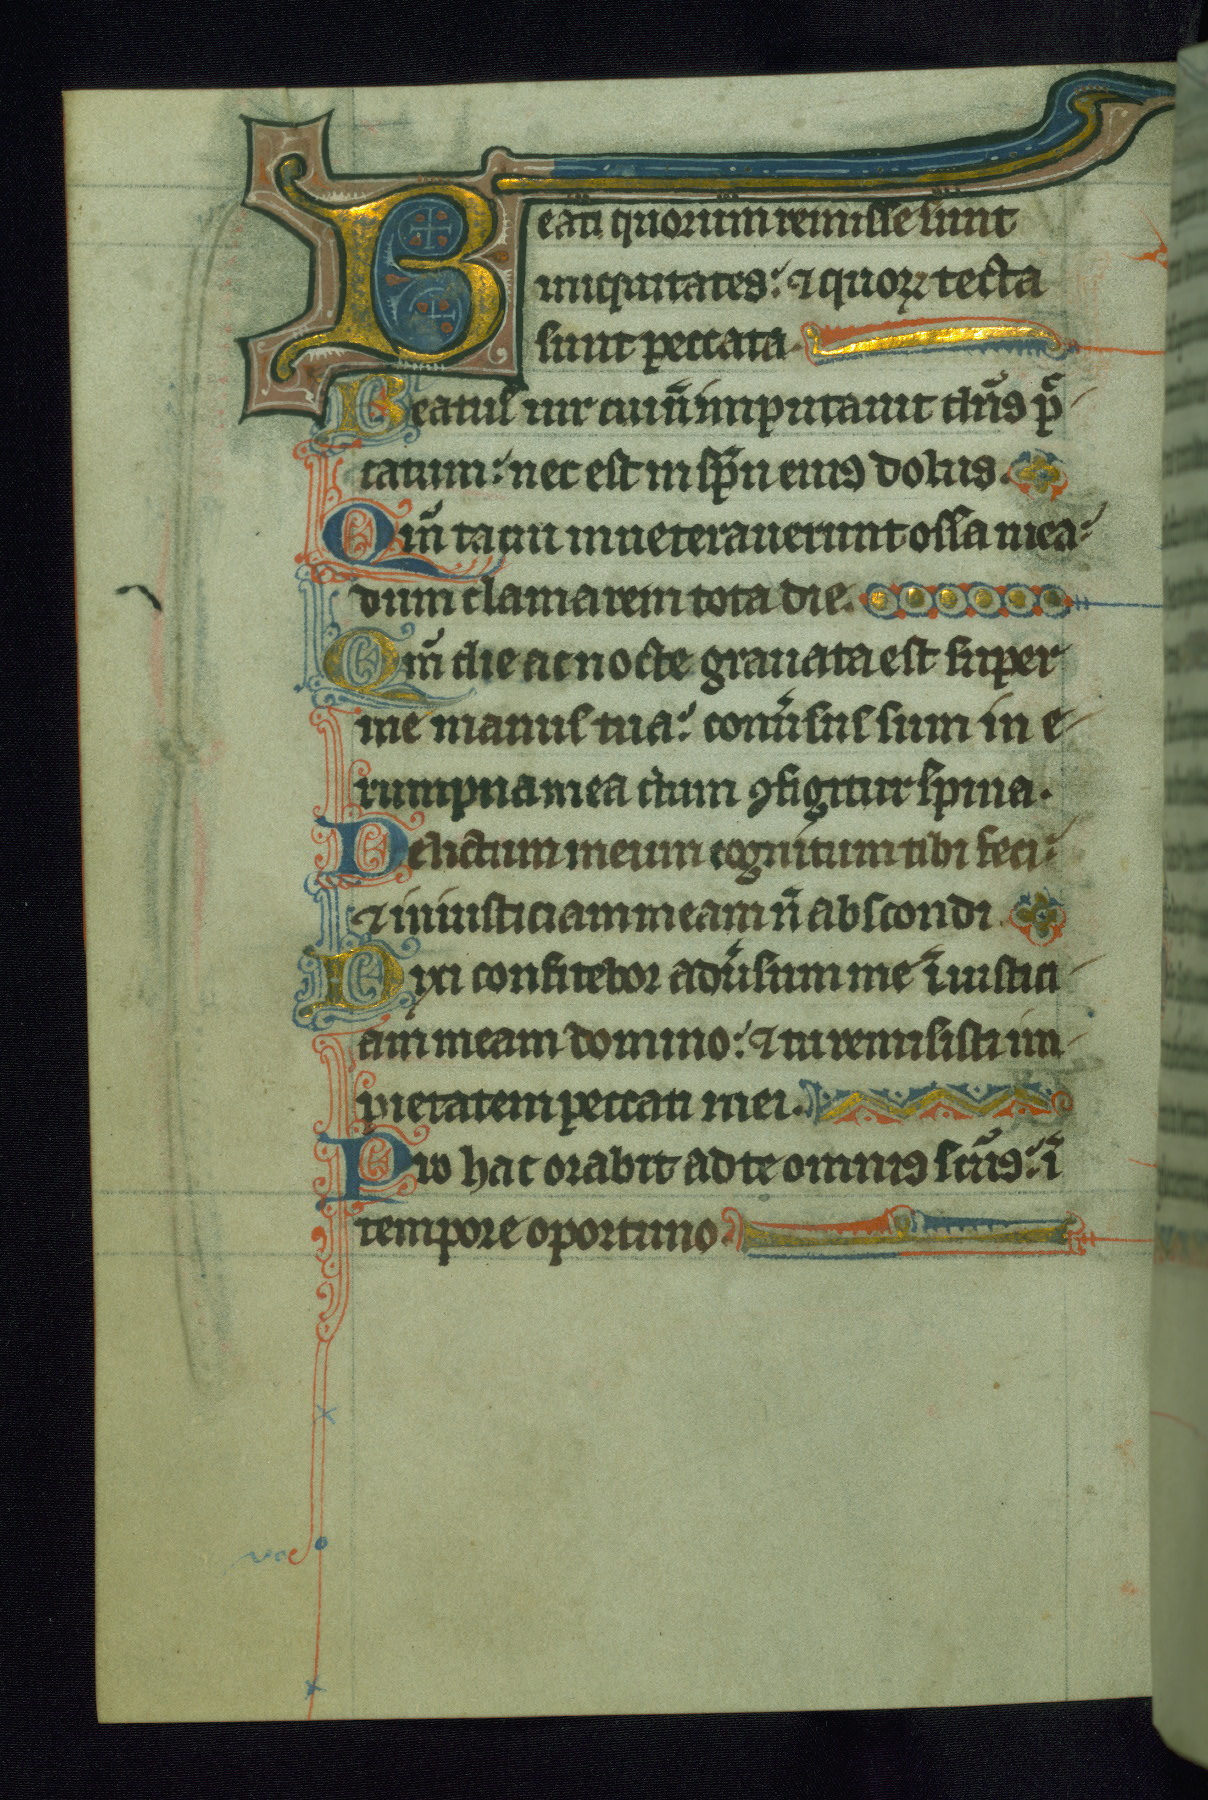 Beati quorum remisse sunt
iniquitates: ⁊ quoꝝ tecta
sunt peccata
Beatus uir cui ñ imputauit dn̄s p̄
catum: nec est in sp̄u eius dolus.
Qm̄ tacui inueterauerunt ossa mea:
dum clamarem tota die.
Qm̄ die ac nocte grauata est super
me manus tua: conūsus sum in e
rumpna mea dum ꝯfigitur spina.
Delictum meum cognitum tibi feci:
⁊ iniusticiam meam ñ abscondi.
Dixi confitebor adūsum me īiustici
am meam domino: ⁊ tu remisisti im
pietatem peccati mei.
Pro hac orabit ad te omnis scūs: ī
tempore oportuno